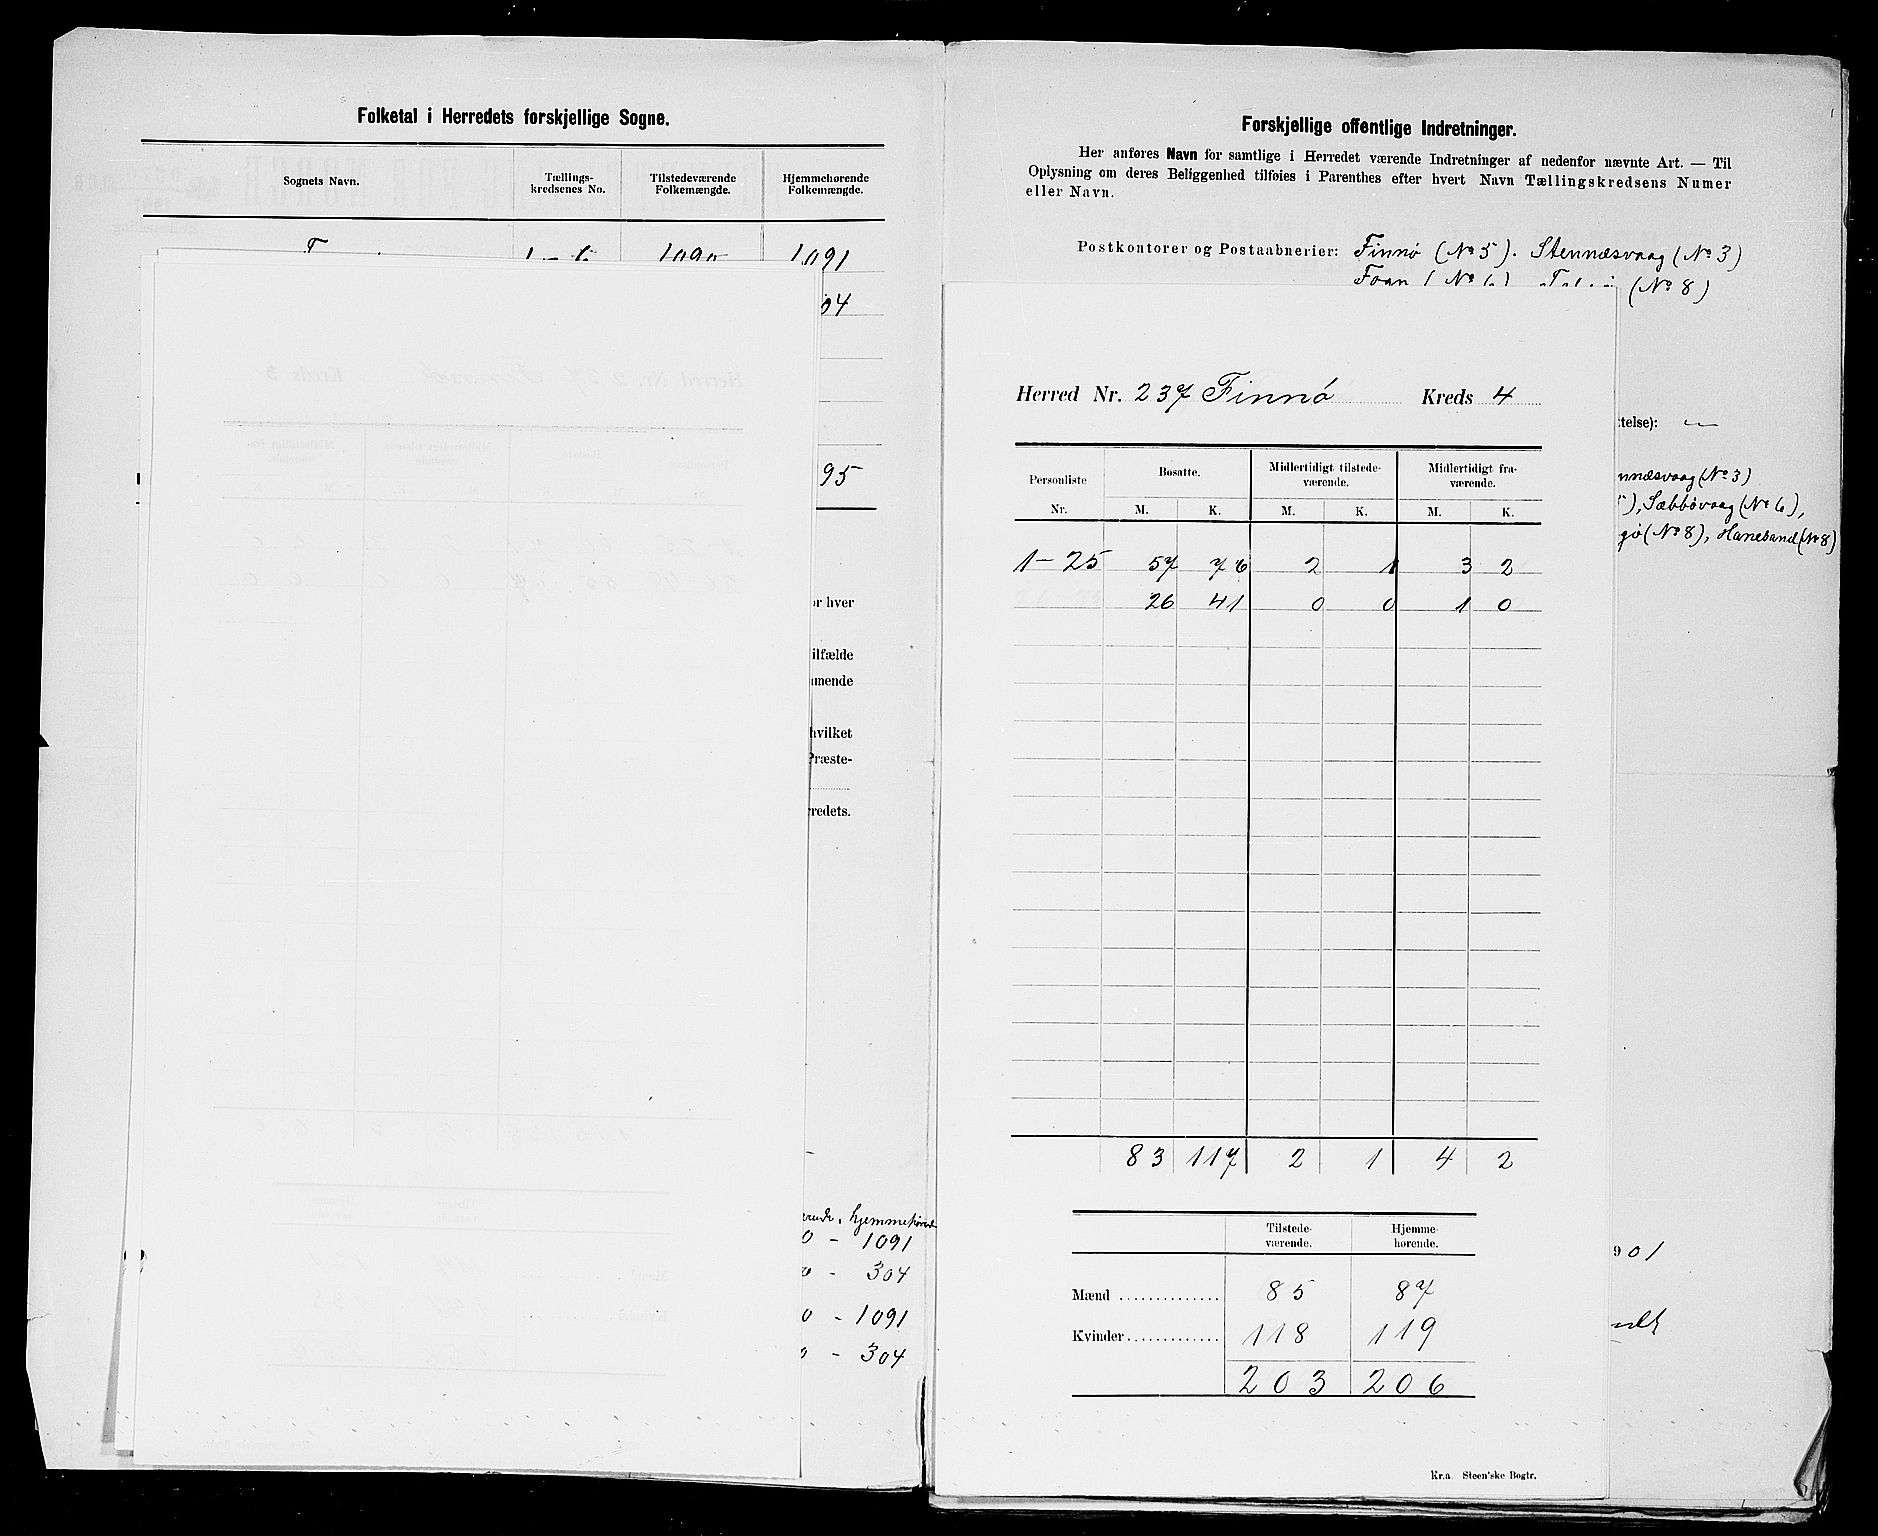 Folketal i Herredets forskjellige Sogne.
Sognets Navn. Tællings-kredsenes No. Tilstedeværende Folkemængde. Hjemmehørende Folkemængde.
1091
04
95
or hver
ilfælde
mmende
hvilket
Præste-
redets.
hjemmehørende
0 - 1091
0 - 304
0 - 1091
0 - 304
Forskjellige offentlige Indretninger.
Her anføres Navn for samtlige i Herredet værende Indretninger af nedenfor nævnte Art. — Til
Oplysning om deres Beliggenhed tilføies i Parenthes efter hvert Navn Tællingskredsens Numer
eller Navn.
Postkontorer og Postaabnerier: Finnø (No 5). Stennæsvaag (No 3)
(No 8)
ttelse): —
nnæsvaag (No 3)
), Sæbbøvaag (No 6),
gø (No 8), Hanesand (No 8)
901
Herred Nr. 237 Finnø Kreds 4
Personliste Bosatte. Midlertidigt tilstede-værende. Midlertidigt fra-værende.
Nr. M. K. M. K. M. K.
1-25 57 76 2 1 3 2
26 41 0 0 1 0
83 117 2 1 4 2
Tilstede-værende. Hjemme-hørende.
Mænd 85 87
Kvinder 118 119
203 206
Kr.a. Steen'ske Bogtr.